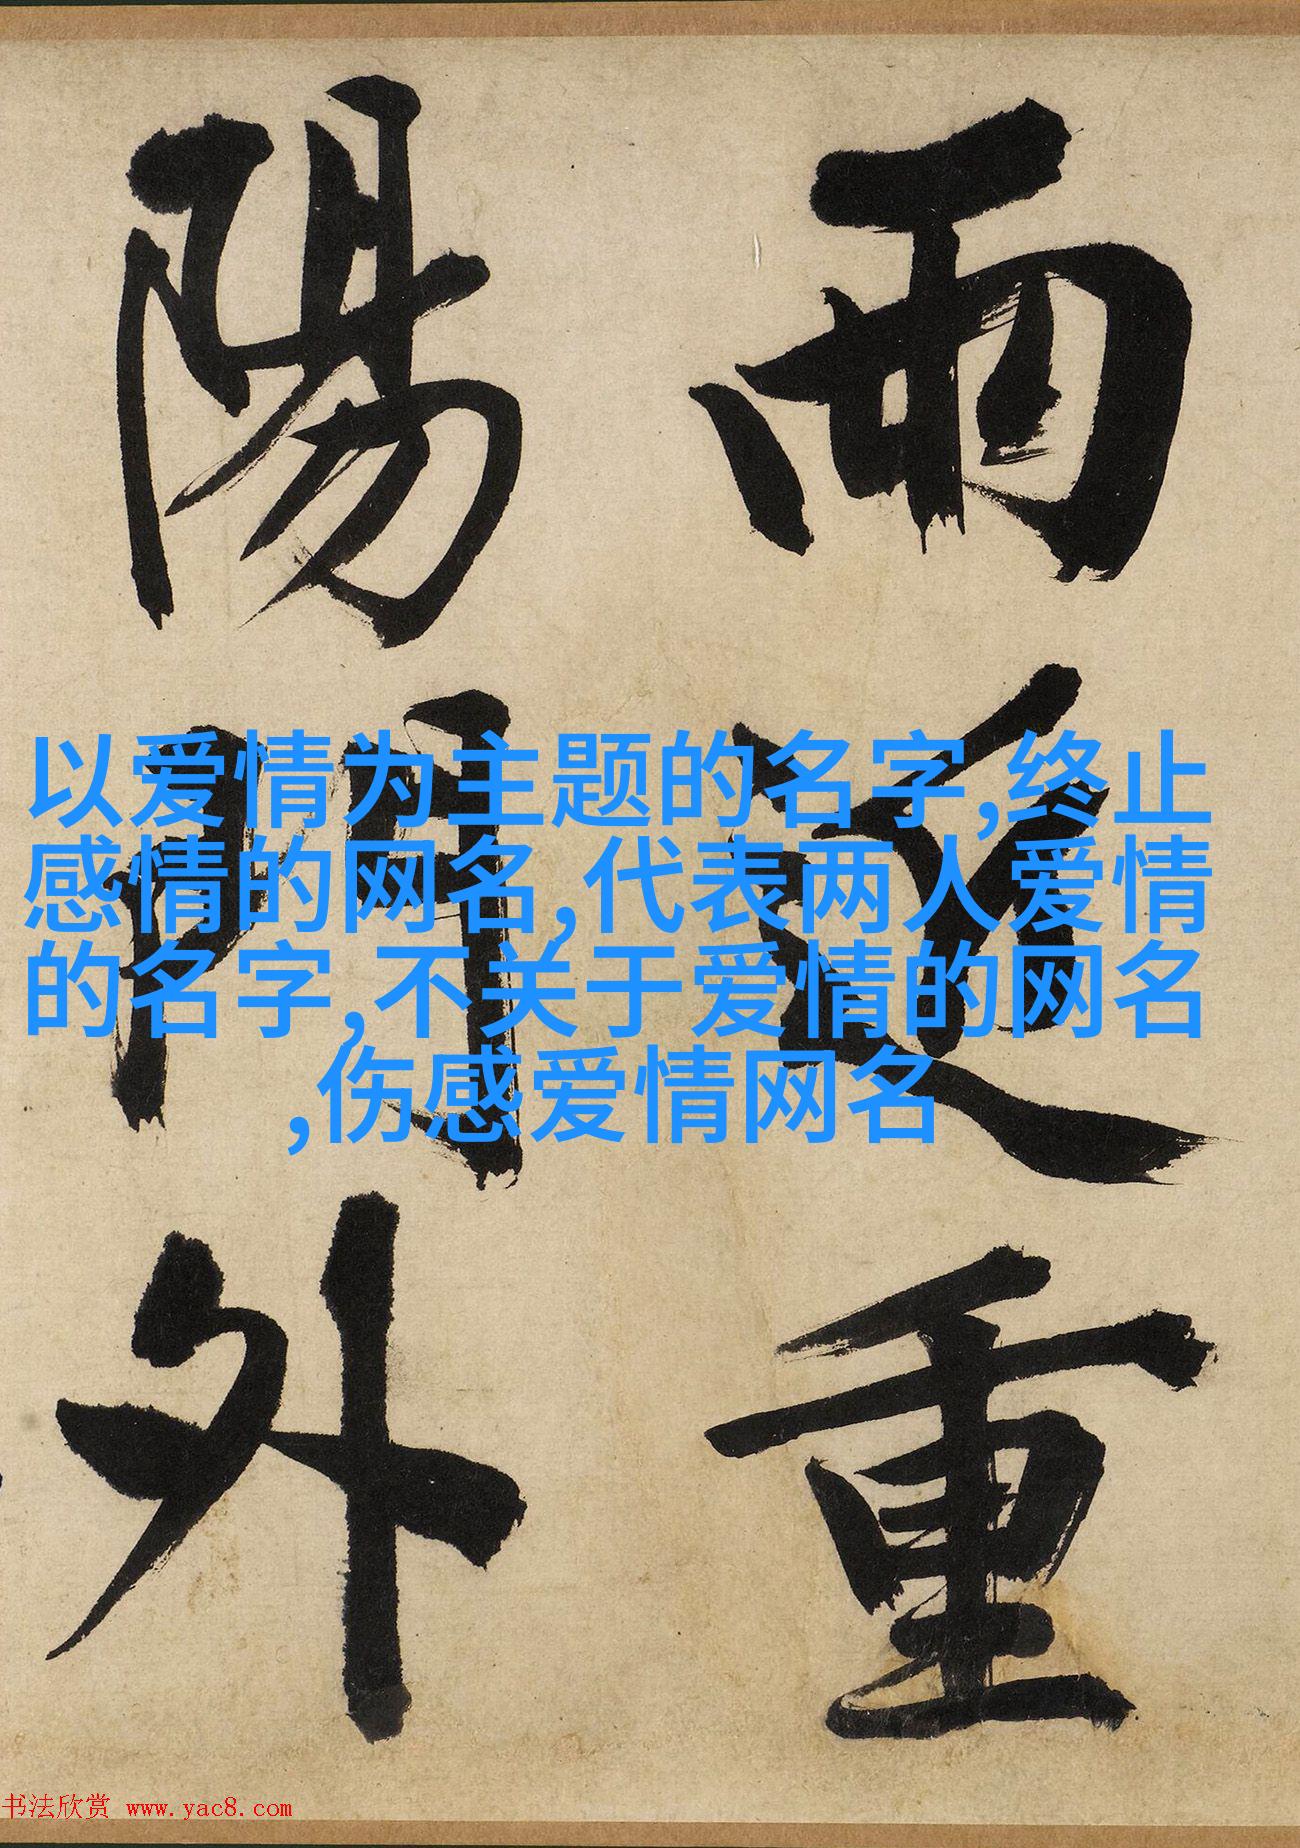 雨重
陽門外
以爱情为主题的名字,终止
感情的网名,代表两人爱情
的名字,不关于爱情的网名
,伤感爱情网名
书法欣赏 www.yac8.com